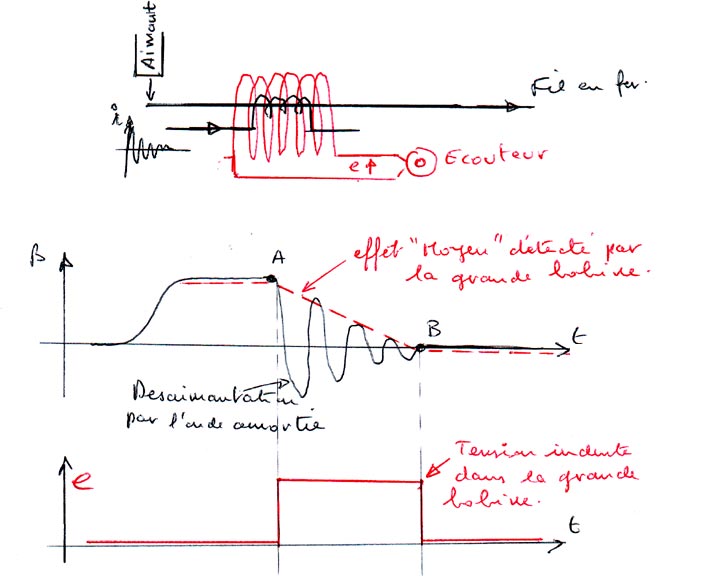 Aimant
Fil en fer.
i
e
Ecouteur
B
A
effet "Moyen" détecté par
la grande bobine.
B
t
Desaimantation
par l'onde amortie
e
Tension induite
dans la grande
bobine.
t